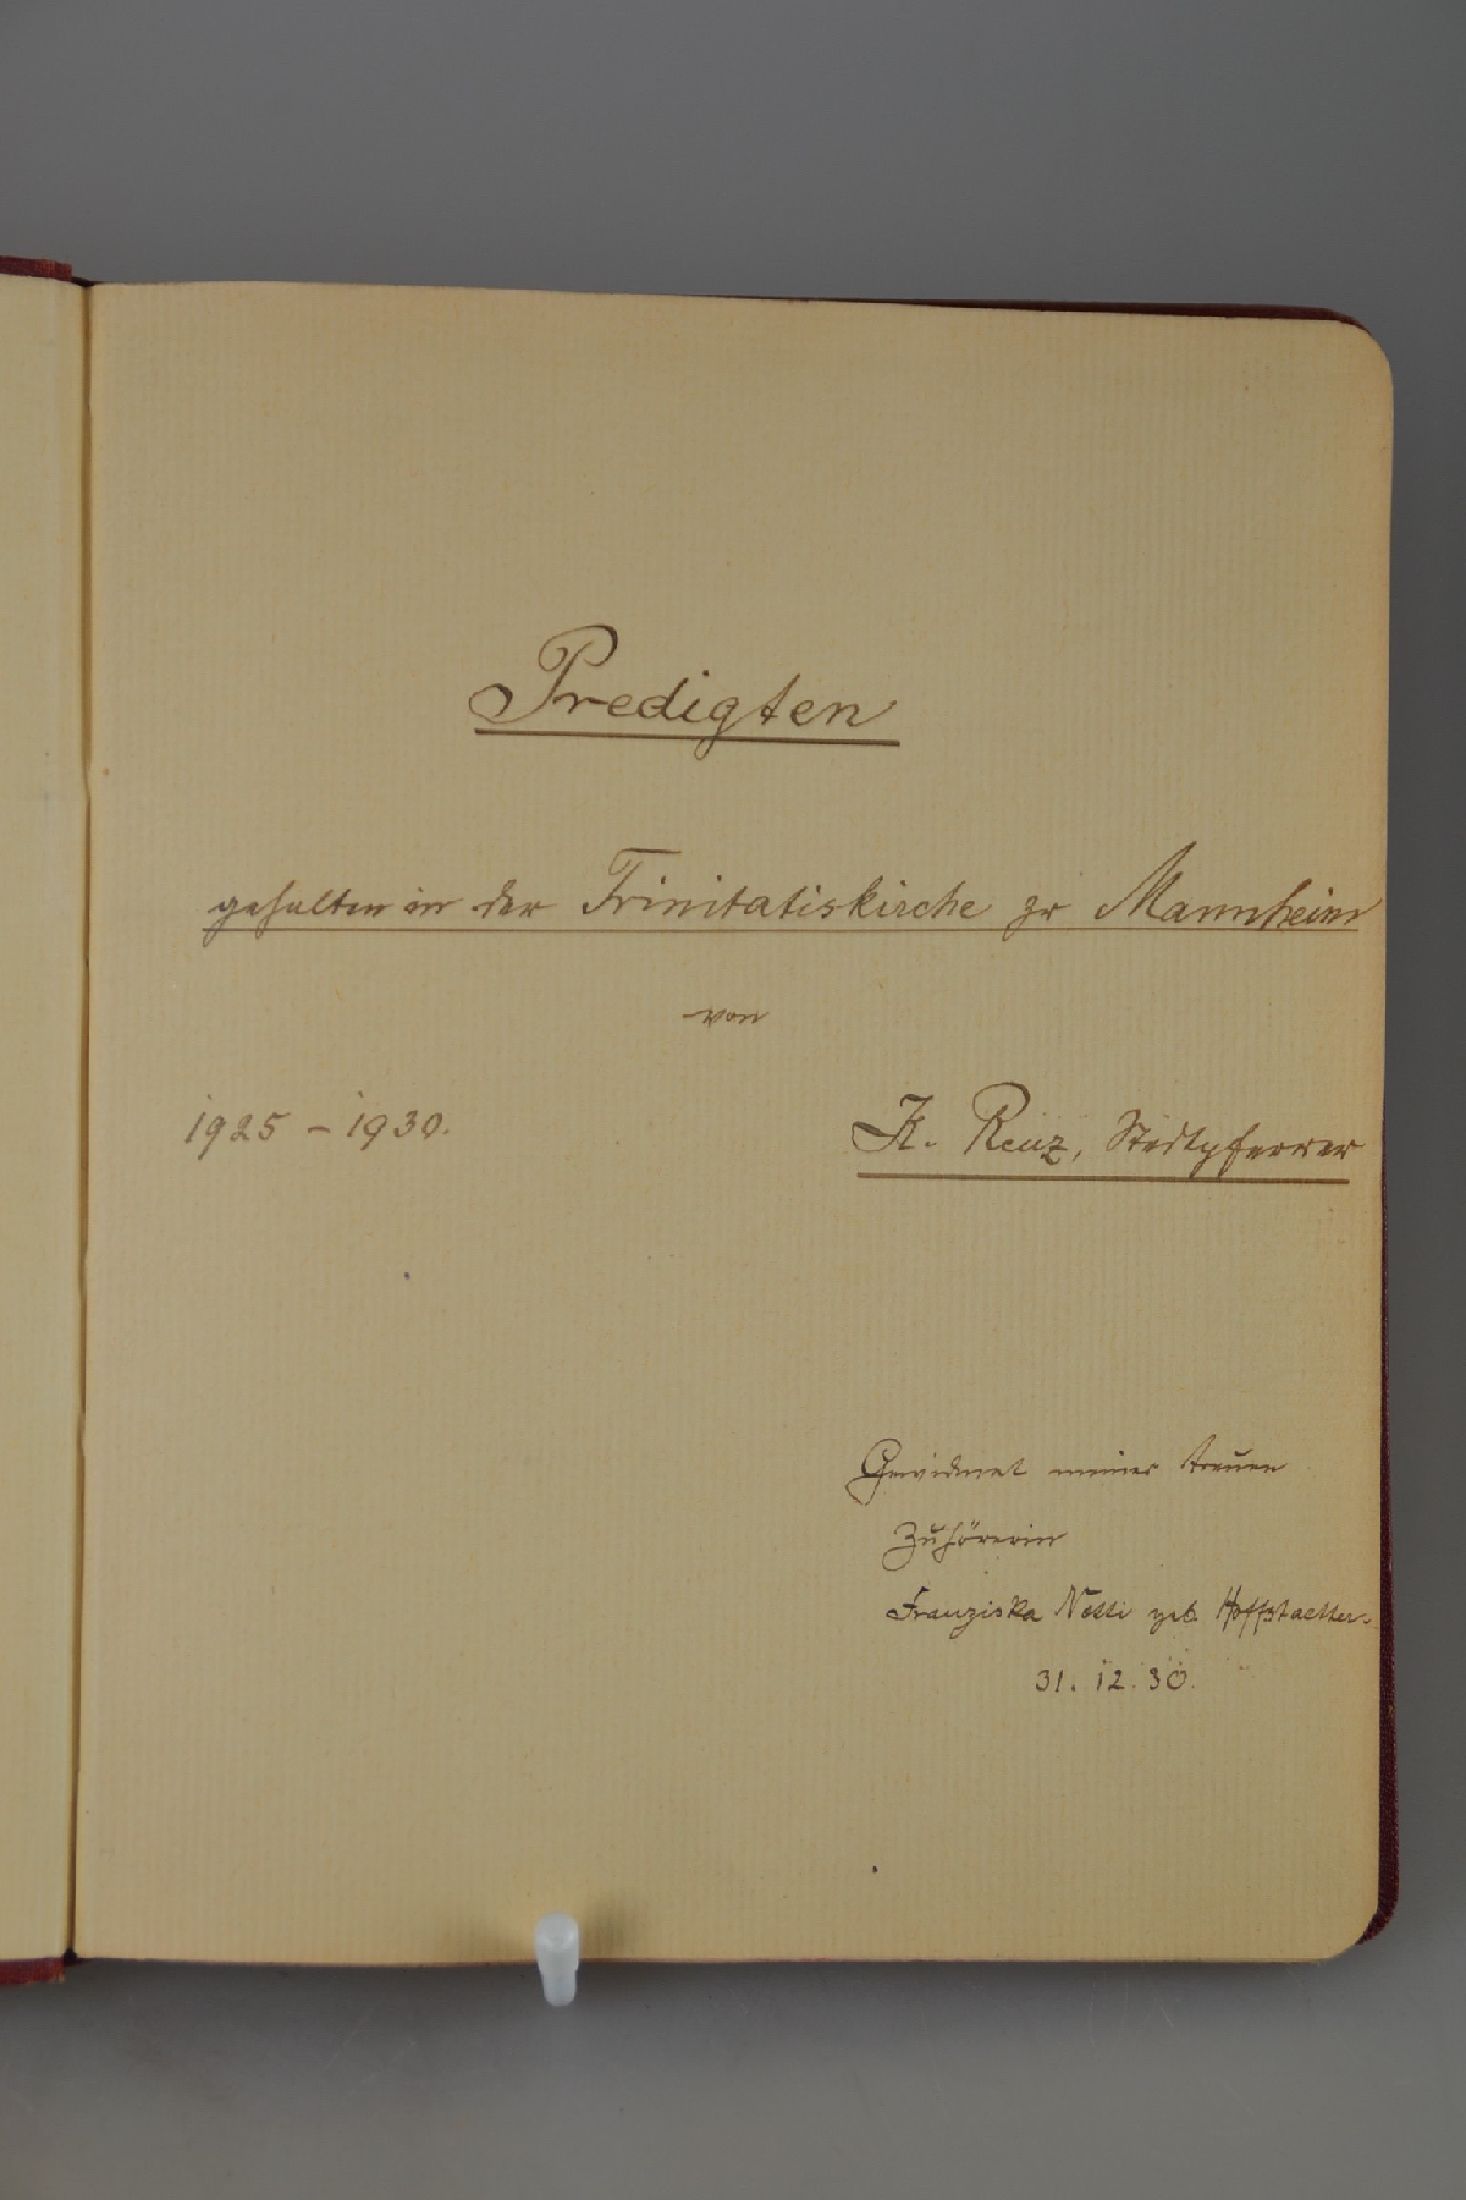 Predigten
gehalten in der Trinitatiskirche zu Mannheim
von
1925 – 1930.
K. Renz, Stadtpfarrer
Gewidmet meiner treuen
Zuhörerin
Franziska Nelli geb. Hoffstaetter.
31. 12. 30.